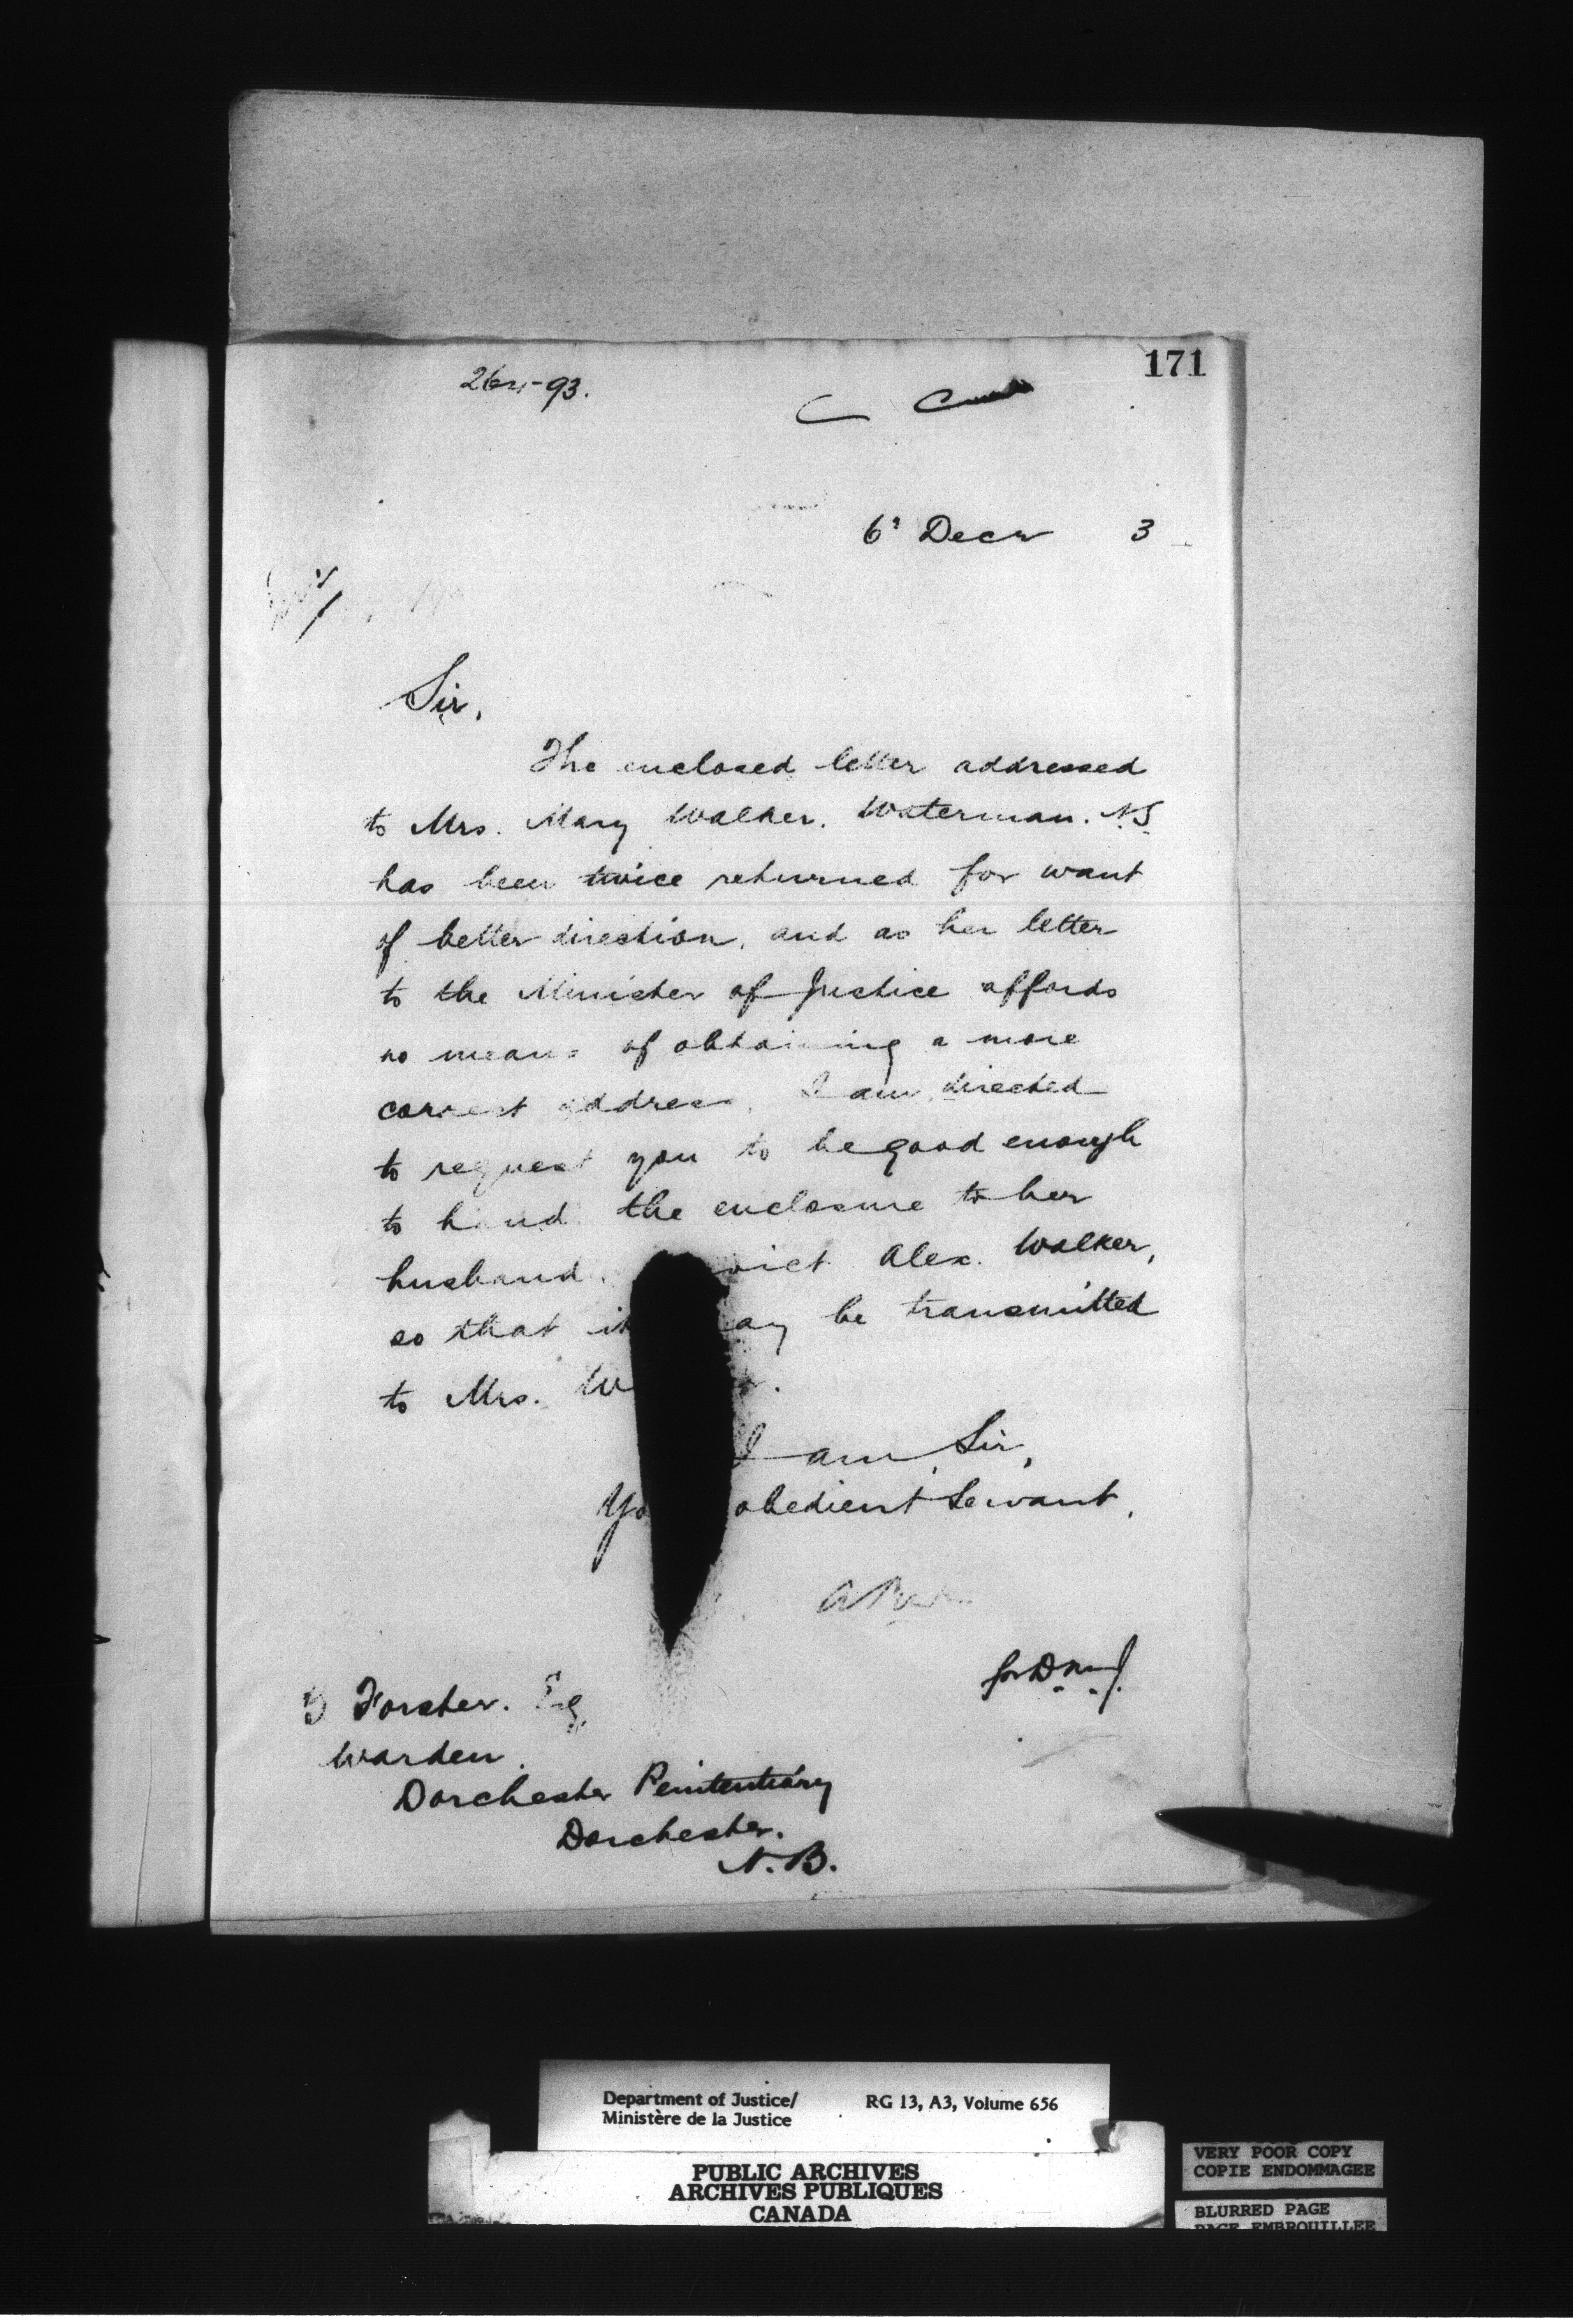 171
-93.
6 Decr 3
Sir,
The enclosed letter addressed
to Mrs. Mary Walker. Waterman. N.S
has been twice returned for want
of better direction, and as her letter
to the Minister of Justice affords
no means of obtaining a more
correct address, I am directed
to request you to be good enough
to hand the enclosure to her
husband, vict Alex. Walker,
so that it ay be transmitted
to Mrs. W r.
I am, Sir,
Yo obedient Servant,
for D.M.J.
Forster. Esq
Warden.
Dorchester Penitentiary
Dorchester.
N.B.
Department of Justice/ RG 13, A3, Volume 656
Ministère de la Justice
PUBLIC ARCHIVES
ARCHIVES PUBLIQUES
CANADA
VERY POOR COPY
COPIE ENDOMMAGEE
BLURRED PAGE
PAGE EMBROUILLEE